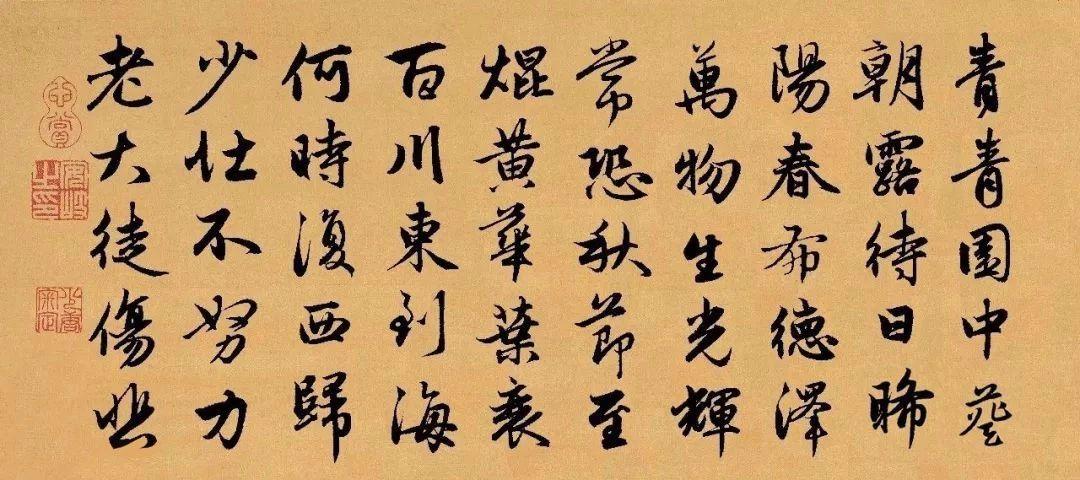 青青園中葵
朝露待日晞
陽春布德澤
萬物生光輝
常恐秋節至
焜黄華葉衰
百川東到海
何時復西歸
少壯不努力
老大徒傷悲